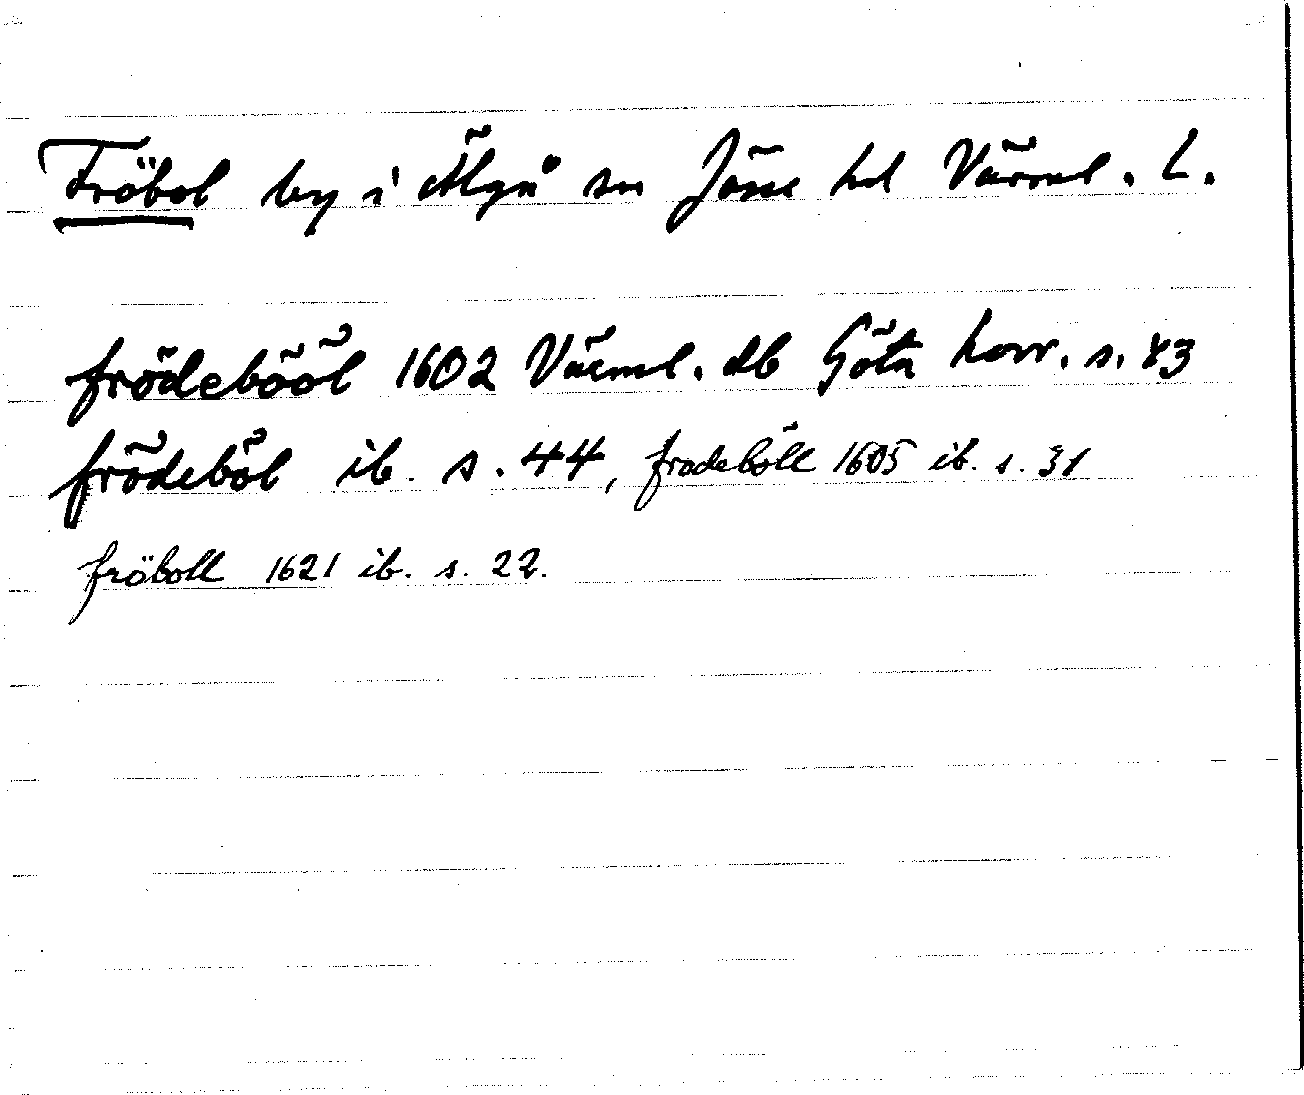 Fröbol by i Älgå sn Jösse hd Värml. L.
frödebööl 1602 Värml. db Göta hovr. s. 43
frödeböl ib. s. 44, frodeböll 1605 ib. s. 31
fröboll 1621 ib. s. 22.